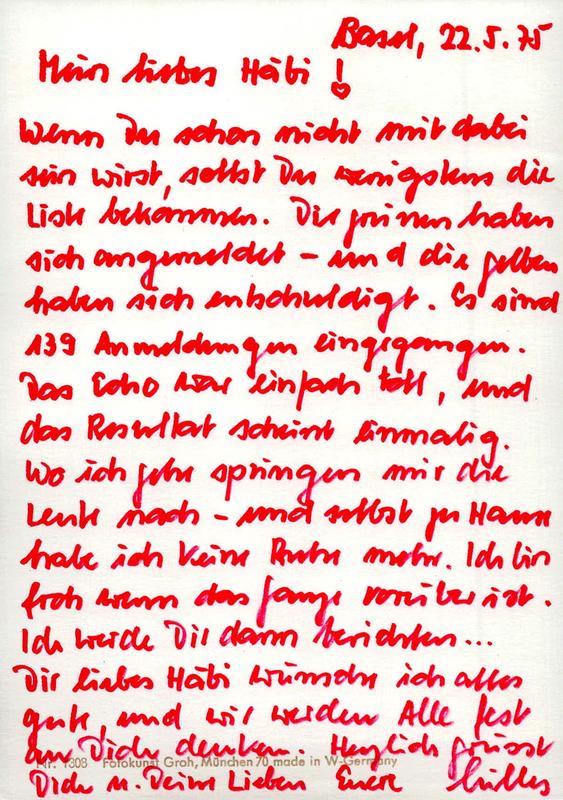 Basel, 22.5.75
Mein liebes Häbi!
Wenn Du schon nicht mit dabei
sein wirst, sollst Du wenigstens die
Liste bekommen. Die grünen haben
sich angemeldet - und die gelben
haben sich entschuldigt. Es sind
139 Anmeldungen eingegangen.
Das Echo war einfach toll, und
das Resultat scheint einmalig.
Wo ich gehe springen mir die
Leute nach - und selbst zu Hause
habe ich keine Ruhe mehr. Ich bin
froh wenn das ganze vorüber ist.
Ich werde Dir dann berichten...
Dir liebes Häbi wünsche ich alles
gute, und wir werden Alle fest
an Dich denken. Herzlich grüsst
Nr. 1308 Fotokunst Groh, München 70 made in W-Germany
Dich u. Deine Lieben Euer